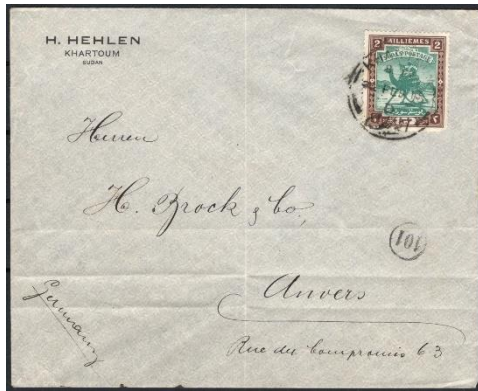 H. HEHLEN
KHARTOUM
SUDAN
2 MILLIEMES 2
SUDAN POSTAGE
Herren
H. Brock & Co.,
101
Anvers
Germany
Rue du Compromis 63